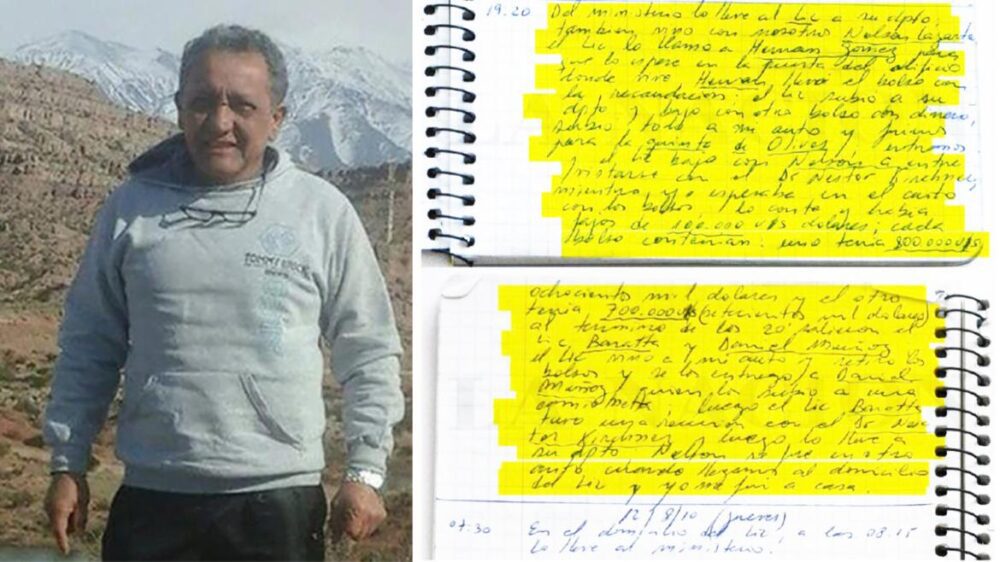 TOMMY
19:20 Del ministerio lo lleve al Lic a su dpto,
tambien vino con nosotros Nelson Lazarte,
el Lic lo llamo a Hernan Gomez para
que lo espere en la puerta del edificio
donde vive Hernan, llevó el bolso con
la recaudacion; el Lic subio a su
dpto y bajo con otro bolso con dinero,
subio todo a mi auto y fuimos
para la quinta de Olivos, entramos
y el Lic bajo con Nelson a entre
vistarse con el Dr Nestor Kirchner,
mientras yo esperaba en el auto
con los bolsos, lo conte y habia
fajos de 100.000 U$S dolares; cada
bolso contenian: uno tenia 800.000 U$S
ochocientos mil dolares y el otro
tenia 700.000 U$S (setecientos mil dolares)
al termino de los 20' salieron el
Lic Baratta y Daniel Muñoz
el Lic vino a mi auto y retiro los
bolsos y se los entrego a Daniel
Muñoz, quien lo subio a una
camioneta, luego el Lic Baratta
tuvo una reunion con el Dr Nes
tor Kirchner, luego lo lleve a
su dpto Nelson se fue en otro
auto cuando llegamos al domicilio
del Lic y yo me fui a casa.
12/8/10 (jueves)
07:30 En el domicilio del Lic, a las 08.15
lo lleve al ministerio.